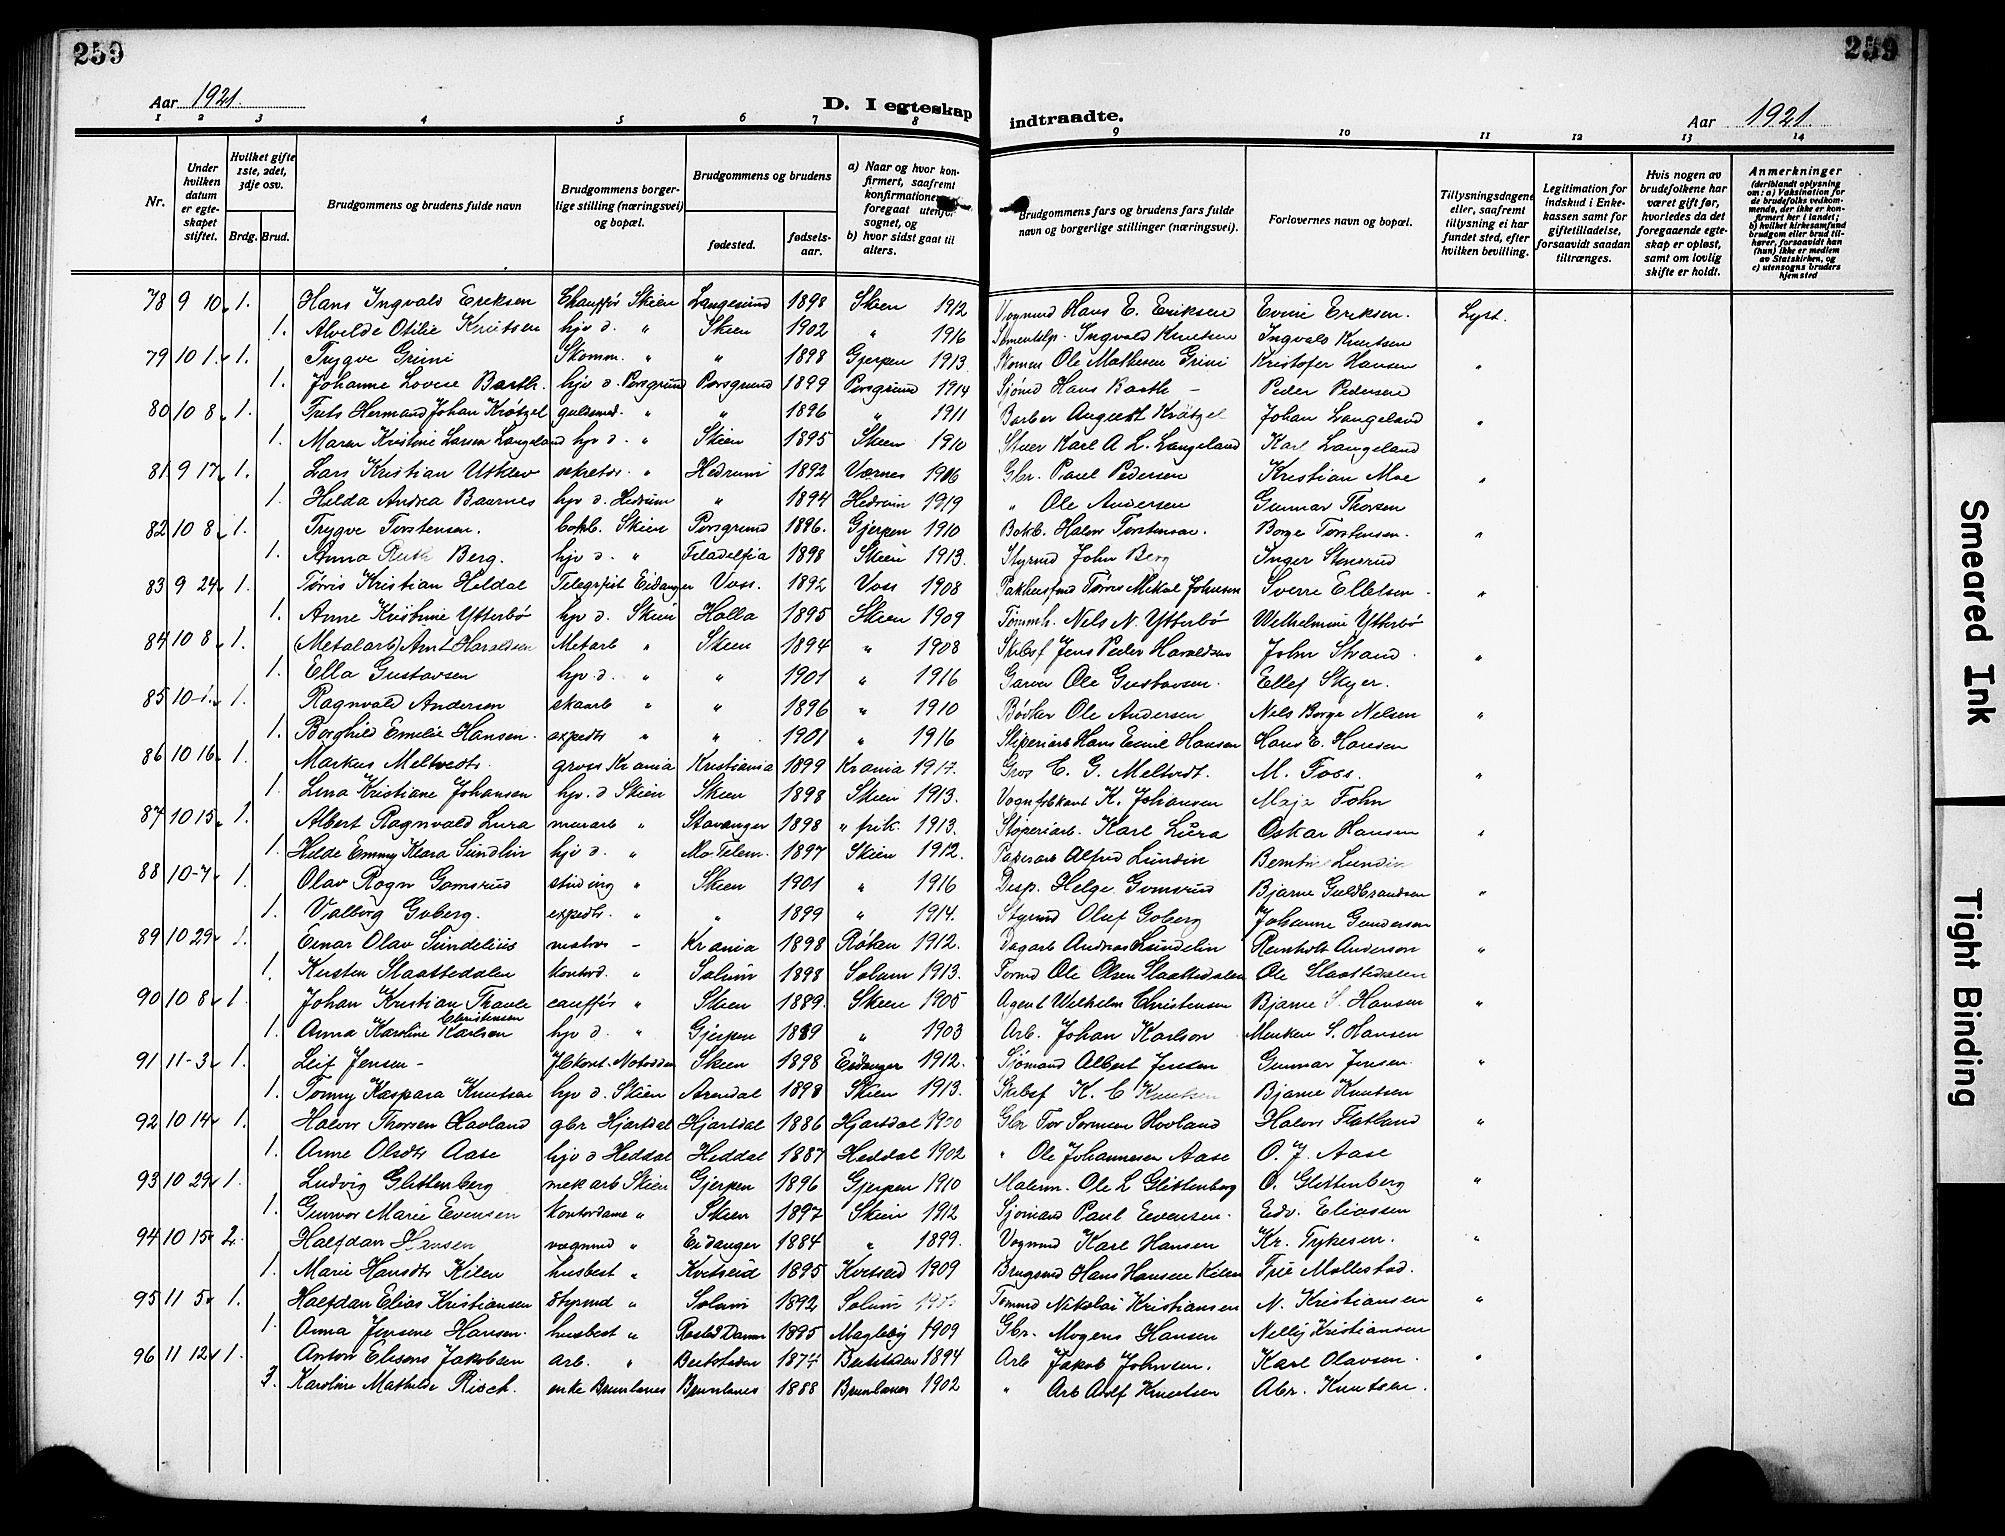 259
259
Aar 1921.
D. I egteskap indtraadte.
Aar 1921.
1 2 3 4 5 6 7 8 9 10 11 12 13 14
Nr.
Under hvilken datum er egteskapet stiftet.
Hvilket gifte 1ste, 2det, 3dje osv.
Brdg. Brud.
Brudgommens og brudens fulde navn
Brudgommens borgerlige stilling (næringsvei) og bopæl.
Brudgommens og brudens
fødested. fødselsaar.
a) Naar og hvor konfirmert, saafremt konfirmationen foregaat utenfor sognet, og
b) hvor sidst gaat til alters.
Brudgommens fars og brudens fars fulde navn og borgerlige stillinger (næringsvei).
Forlovernes navn og bopæl.
Tillysningsdagene eller, saafremt tillysning ei har fundet sted, efter hvilken bevilling.
Legitimation for indskud i Enkekassen samt for giftetilladelse, forsaavidt saadan tiltrænges.
Hvis nogen av brudefolkene har været gift før, hvorledes da det foregaaende egteskap er opløst, samt om lovlig skifte er holdt.
Anmerkninger (deriblandt oplysning om: a) Vaksination for de brudefolks vedkommende, der ikke er konfirmert her i landet; b) hvilket kirkesamfund brudgom eller brud tilhører, forsaavidt han (hun) ikke er medlem av Statskirken, og c) utensogns bruders hjemsted
78 9 10 1. Hans Ingvald Eriksen Chauffør Skien Langesund 1898 Skien 1912 Vognmd Hans E. Eriksen Eriksen. Lyst.
1. Alvilde Otilie Knutsen hjv d. " Skien 1902 " 1916 Ingvald Knutsen Ingvald Knutsen
79 10 1. 1. Trygve Grini Skomm. " " 1898 Gjerpen 1913 Skomm Ole Mathisen Grini Kristofer Hansen "
1. Johanne Lovise Barth. hjv d. Porsgrund Porsgrund 1899 Porsgrund 1914 Sjømd Hans Barth - Peder Pedersen
80 10 8 1. Frits Hermand Johan Krøtzel guldsmed. " " 1896 " 1911 Barber August Krøtzel Johan Langeland "
1. Maren Kristine Larsen Langeland hjv d. " Skien 1895 Skien 1910 Karl A. L. Langeland Karl Langeland
81 9 17 1. Lars Kristian Utklev " Hedrum 1892 Værnes 1906 Gbr. Paul Pedersen Kristian Moe "
1. Helda Andrea Baarnes hjv d. Hedrum " 1894 Hedrum 1919 " Ole Andersen Gunnar Thorsen
82 10 8 1. Trygve Torstensen. Skien Porsgrund 1896. Gjerpen 1910 Bokb. Halvor Torstensen. Borge Torstensen. "
1. Anna Ruth Berg. hjv d. " Filadelfia 1898 Skien 1913. Styrmd John Berg Inger Stensrud
83 9 24 1. Tørris Kristian Heldal Telegrafist Eidanger Voss. Voss 1908 Tørris Mikal Johnsen Sverre Ellefsen "
1. Anne Kristine Ytterbø hjv d. Skien Holla 1895 Skien 1909 Tømmh. Nels N. Ytterbø Wilhelmine Ytterbø
84 10 8 1. (Metalarb) Arnt Haraldsen Metarb " Skien 1894 " 1908 Jens Peder Haraldsen John Strand "
1. Ella Gustavsen hjv d. " " 1901 " 1916 Garver Ole Gustavsen. Ellef Skyer.
85 10-1. 1. Ragnvald Andersen skoarb " " 1896 " 1910 Bødker Ole Andersen Nels Borge Nelsen "
1. Borghild Emelie Hansen. expedtr " " 1901 " 1916 Sliperiarb Hans Emil Hansen Hans E. Hansen
86 10 16 1. Markus Meltvedt. gross Krania Kristiania 1899 Krania 1917. Gros E. G. Meltvedt. M. Foss. "
1. Lina Kristiane Johansen hjv. d Skien Skien 1898 Skien 1913. Vognfabrikant K. Johansen Maja Fohn
87 10 15 1. Albert Ragnvald Lura murarb " Stavanger 1898 " frik. 1913. Støperiarb. Karl Lura Oskar Hansen "
1. Hilde Emmy Klara Lundlin hjv d. " Mo Telem. 1897 Skien 1912. Papirarb Alfred Lundin Lundin
88 10-7 1. Olav Rogn Gomsrud studing " Skien 1901 " 1916 Disp. Helge Gomsrud Bjarne Guldbrandsen "
1. Valborg Goberg. expedtr. " " 1899 " 1914. Styrmd Oluf Goberg Johanne Gundersen
89 10 29 1. Einar Olav Lundelius - Krania 1898 Røken 1912. Dagarb Andreas Lundelin Reinholt Anderson "
1. Kirsten Slaattedalen kontord. " Solum 1898 Solum 1913. Ole Olsen Slaattedalen Ole Slaattedalen
90 10 8 1. Johan Kristian Thrane Christensen cauffør " Skien 1889. Skien 1905 Agent Wilhelm Christensen Bjarne S. Hansen "
1. Anna Karoline Karlson hjv d. " Gjerpen 1889 " 1903 Arb. Johan Karlson S. Hansen
91 11-3 1. Leif Jensen - Notodden Skien 1898 Eidanger 1912. Sjømand Albert Jensen Gunnar Jensen. "
1. Tonny Kaspara Knutsen hjv d. Skien Arendal 1898 Skien 1913. K. C Knutsen Bjarne Knutsen
92 10 14 1. Halvor Thorsen Havland gbr Hjartdal Hjartdal 1886 Hjartdal 1900 Gbr Tor Hovland Halvor Flatland "
1. Anne Olsdtr Aase hjv d Heddal Heddal 1887 Heddal 1902 " Ole Johannesen Aase O. J. Aase
93 10 29 1. Ludvig Glittenberg mekarb Skien Gjerpen 1896 Gjerpen 1910 Malerm. Ole L Glittenberg O. Glittenberg "
1. Gunvor Marie Evensen kontordame " Skien 1897 Skien 1912 Sjømand Paul Evensen. Edv. Eliassen
94 10 15 2. Halfdan Hansen vognmd " Eidanger 1884 " 1899. Vognmd Karl Hansen Kr. Tykesen. "
1. Marie Hansdtr Kilen husbest " Kviteseid 1895 Kviteseid 1909 Brugsmd Hans Hansen Kilen Mollestad.
95 11 5 1. Halfdan Elias Kristiansen Styrmd " Solum 1892 Solum Tømmd Nikolai Kristiansen N. Kristiansen "
1. Anna Jensine Hansen. husbest " 1895 Magleby 1909 Gbr. Mogens Hansen Nelly Kristiansen
96 11 12 1. Anton Elisens Jakobsen arb. " 1894 Arb Jakob Johnsen. Karl Olavsen. "
3. Karoline Mathilde Risch. enke Brunlanes Brunlanes 1888 Brunlanes 1902 " Arb Adolf Knudsen Abr. Knutsen.
Smeared Ink
Tight Binding